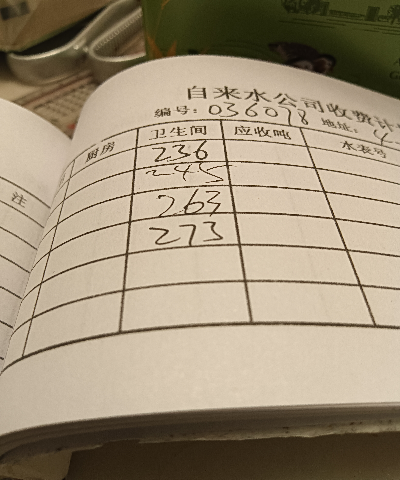 自来水公司收费计
编号: 036098 地址: 4-
厨房 卫生间 应收吨 水表号
236
245
263
273
注